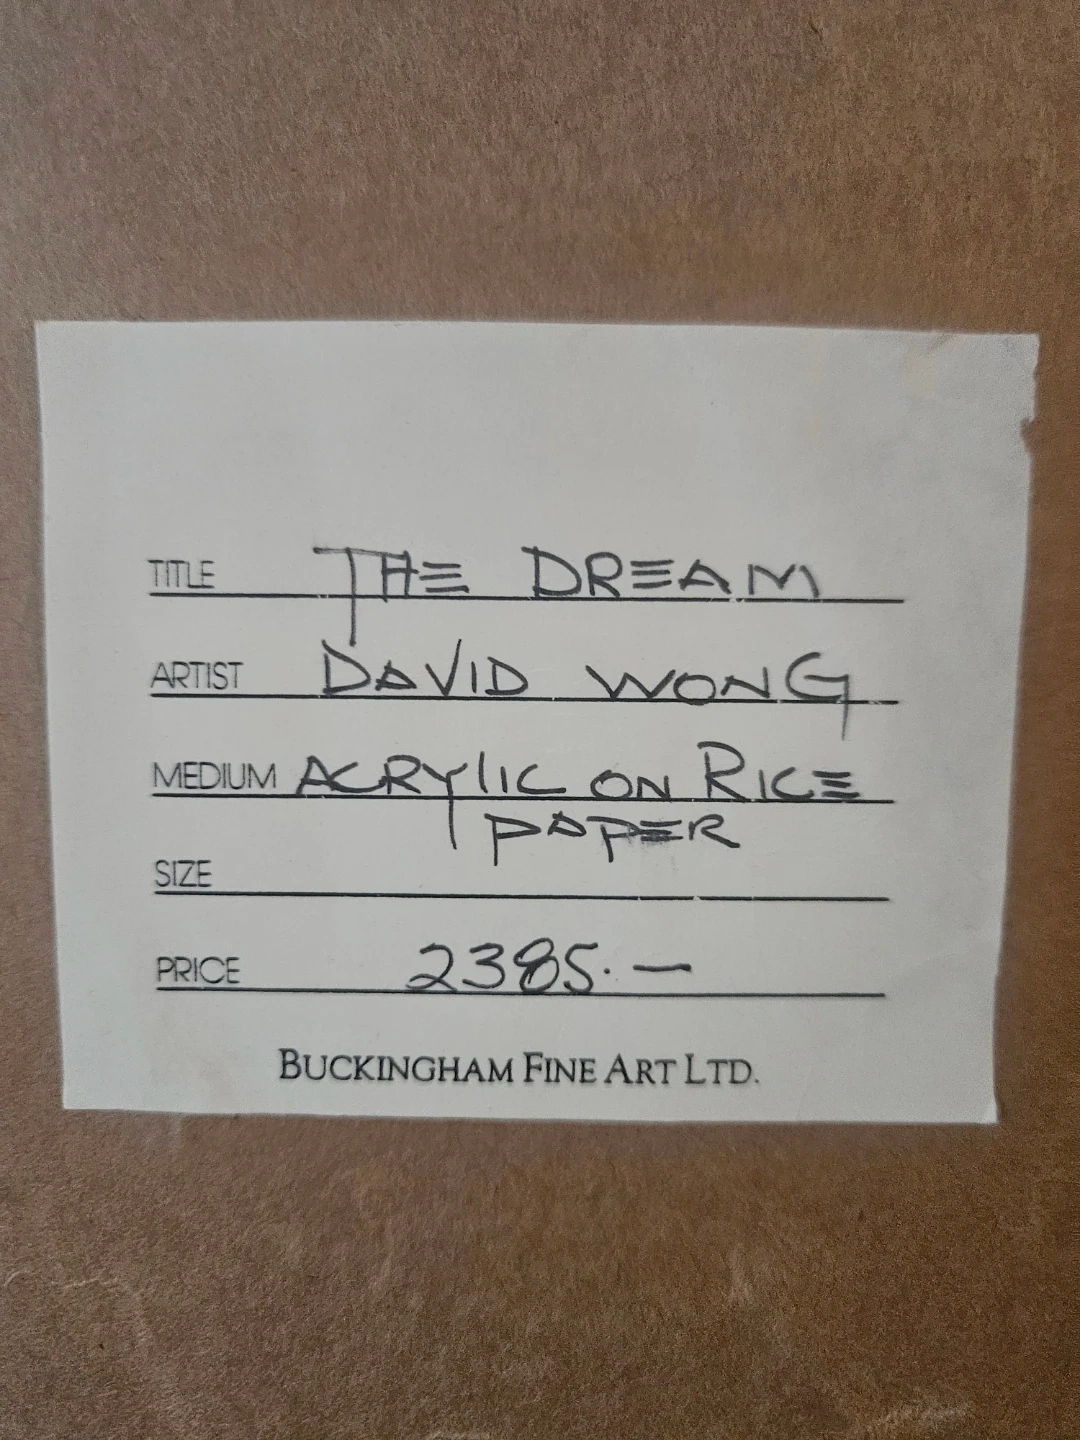 TITLE THE DREAM
ARTIST DAVID WONG
MEDIUM ACRYLIC ON RICE
PAPER
SIZE
PRICE 2385.—
BUCKINGHAM FINE ART LTD.